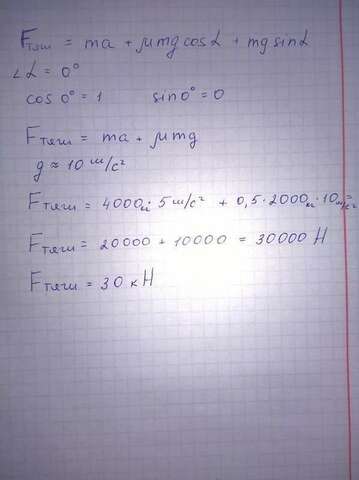 Fтяги = ma + μmg cosα + mg sinα
∠α = 0°
cos 0° = 1 sin 0° = 0
Fтяги = ma + μmg
g ≈ 10 м/с²
Fтяги = 4000кг · 5 м/с² + 0,5 · 2000кг · 10м/с² =
Fтяги = 20000 + 10000 = 30000 Н
Fтяги = 30 кН